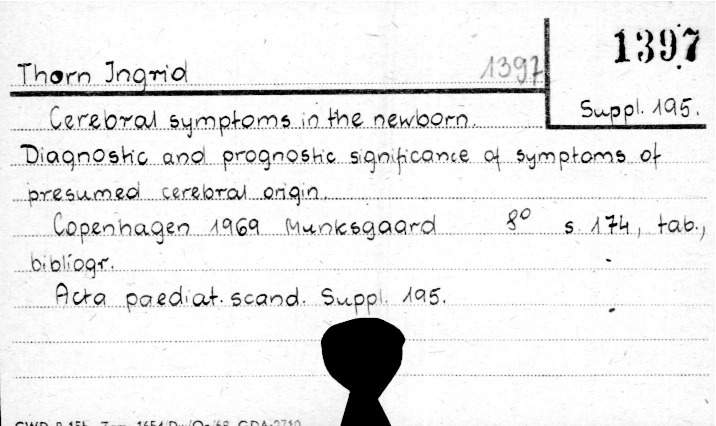 1397
Thorn Ingrid 1397
Suppl. 195.
Cerebral symptoms in the newborn.
Diagnostic and prognostic significance of symptoms of
presumed cerebral origin.
Copenhagen 1969 Munksgaard 8º s. 174, tab.,
bibliogr.
Acta paediat. scand. Suppl. 195.